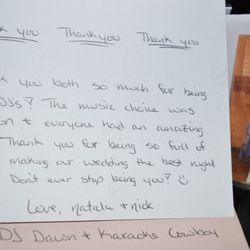 you Thankyou Thank you
you both so much for being
DJ's? The music choice was
+ everyone had an amazing
Thank you for being so full of
making our wedding the best night
Don't ever stop being you? ☺
Love, Natalie + nick
DJ Dawn + Karaoke Cowboy